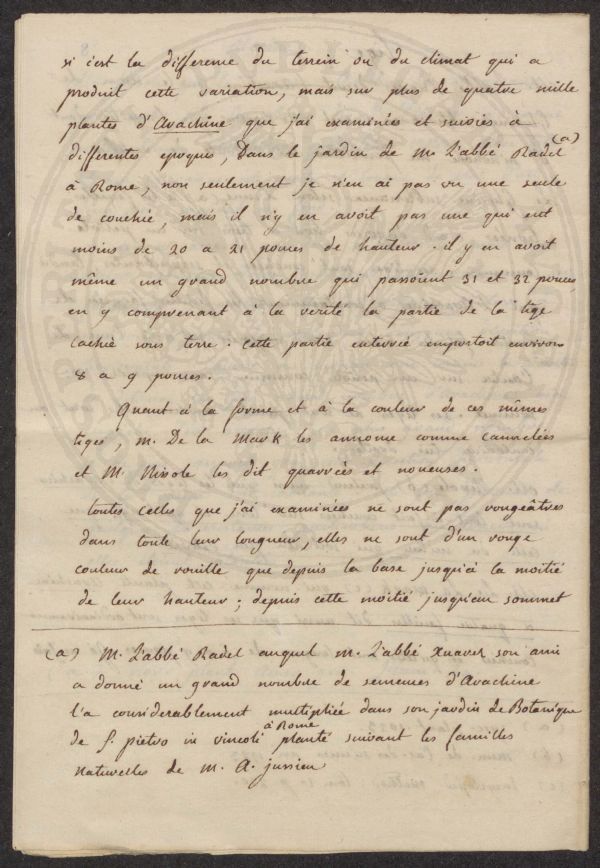 si c'est la difference du terrein ou du climat qui a
produit cette variation, mais sur plus de quatre mille
plantes d'Avachine que j'ai examinées et suivies à
differentes epoques, Dans le jardin de Mr L'abbé Radel (a)
à Rome, non seulement je n'en ai pas vu une seule
de couchée, mais il n'y en avoit pas une qui eut
moins de 20 a 21 pouces de hauteur. il y en avoit
même un grand nombre qui passoient 31 et 32 pouces
en y comprenant à la verité la partie de la tige
cachée sous terre. Cette partie enterrée emportoit environ
8 a 9 pouces.
Quant à la forme et à la couleur de ces mêmes
tiges, M. De la Mark les annonce comme cannelées
et M. Nissole les dit quarrées et noueuses.
toutes celles que j'ai examinées ne sont pas rougeâtres
dans toute leur longueur, elles ne sont d'un rouge
couleur de rouille que depuis la base jusqu'à la moitié
de leur hauteur; depuis cette moitié jusqu'au sommet
(a) M. L'abbé Radel auquel M. L'abbé Xuarez son ami
a donné un grand nombre de semences d'Avachine
l'a considerablement multipliée dans son jardin de Botanique
de S. pietro in vincoli à Rome planté suivant les familles
naturelles de M. A. jussieu